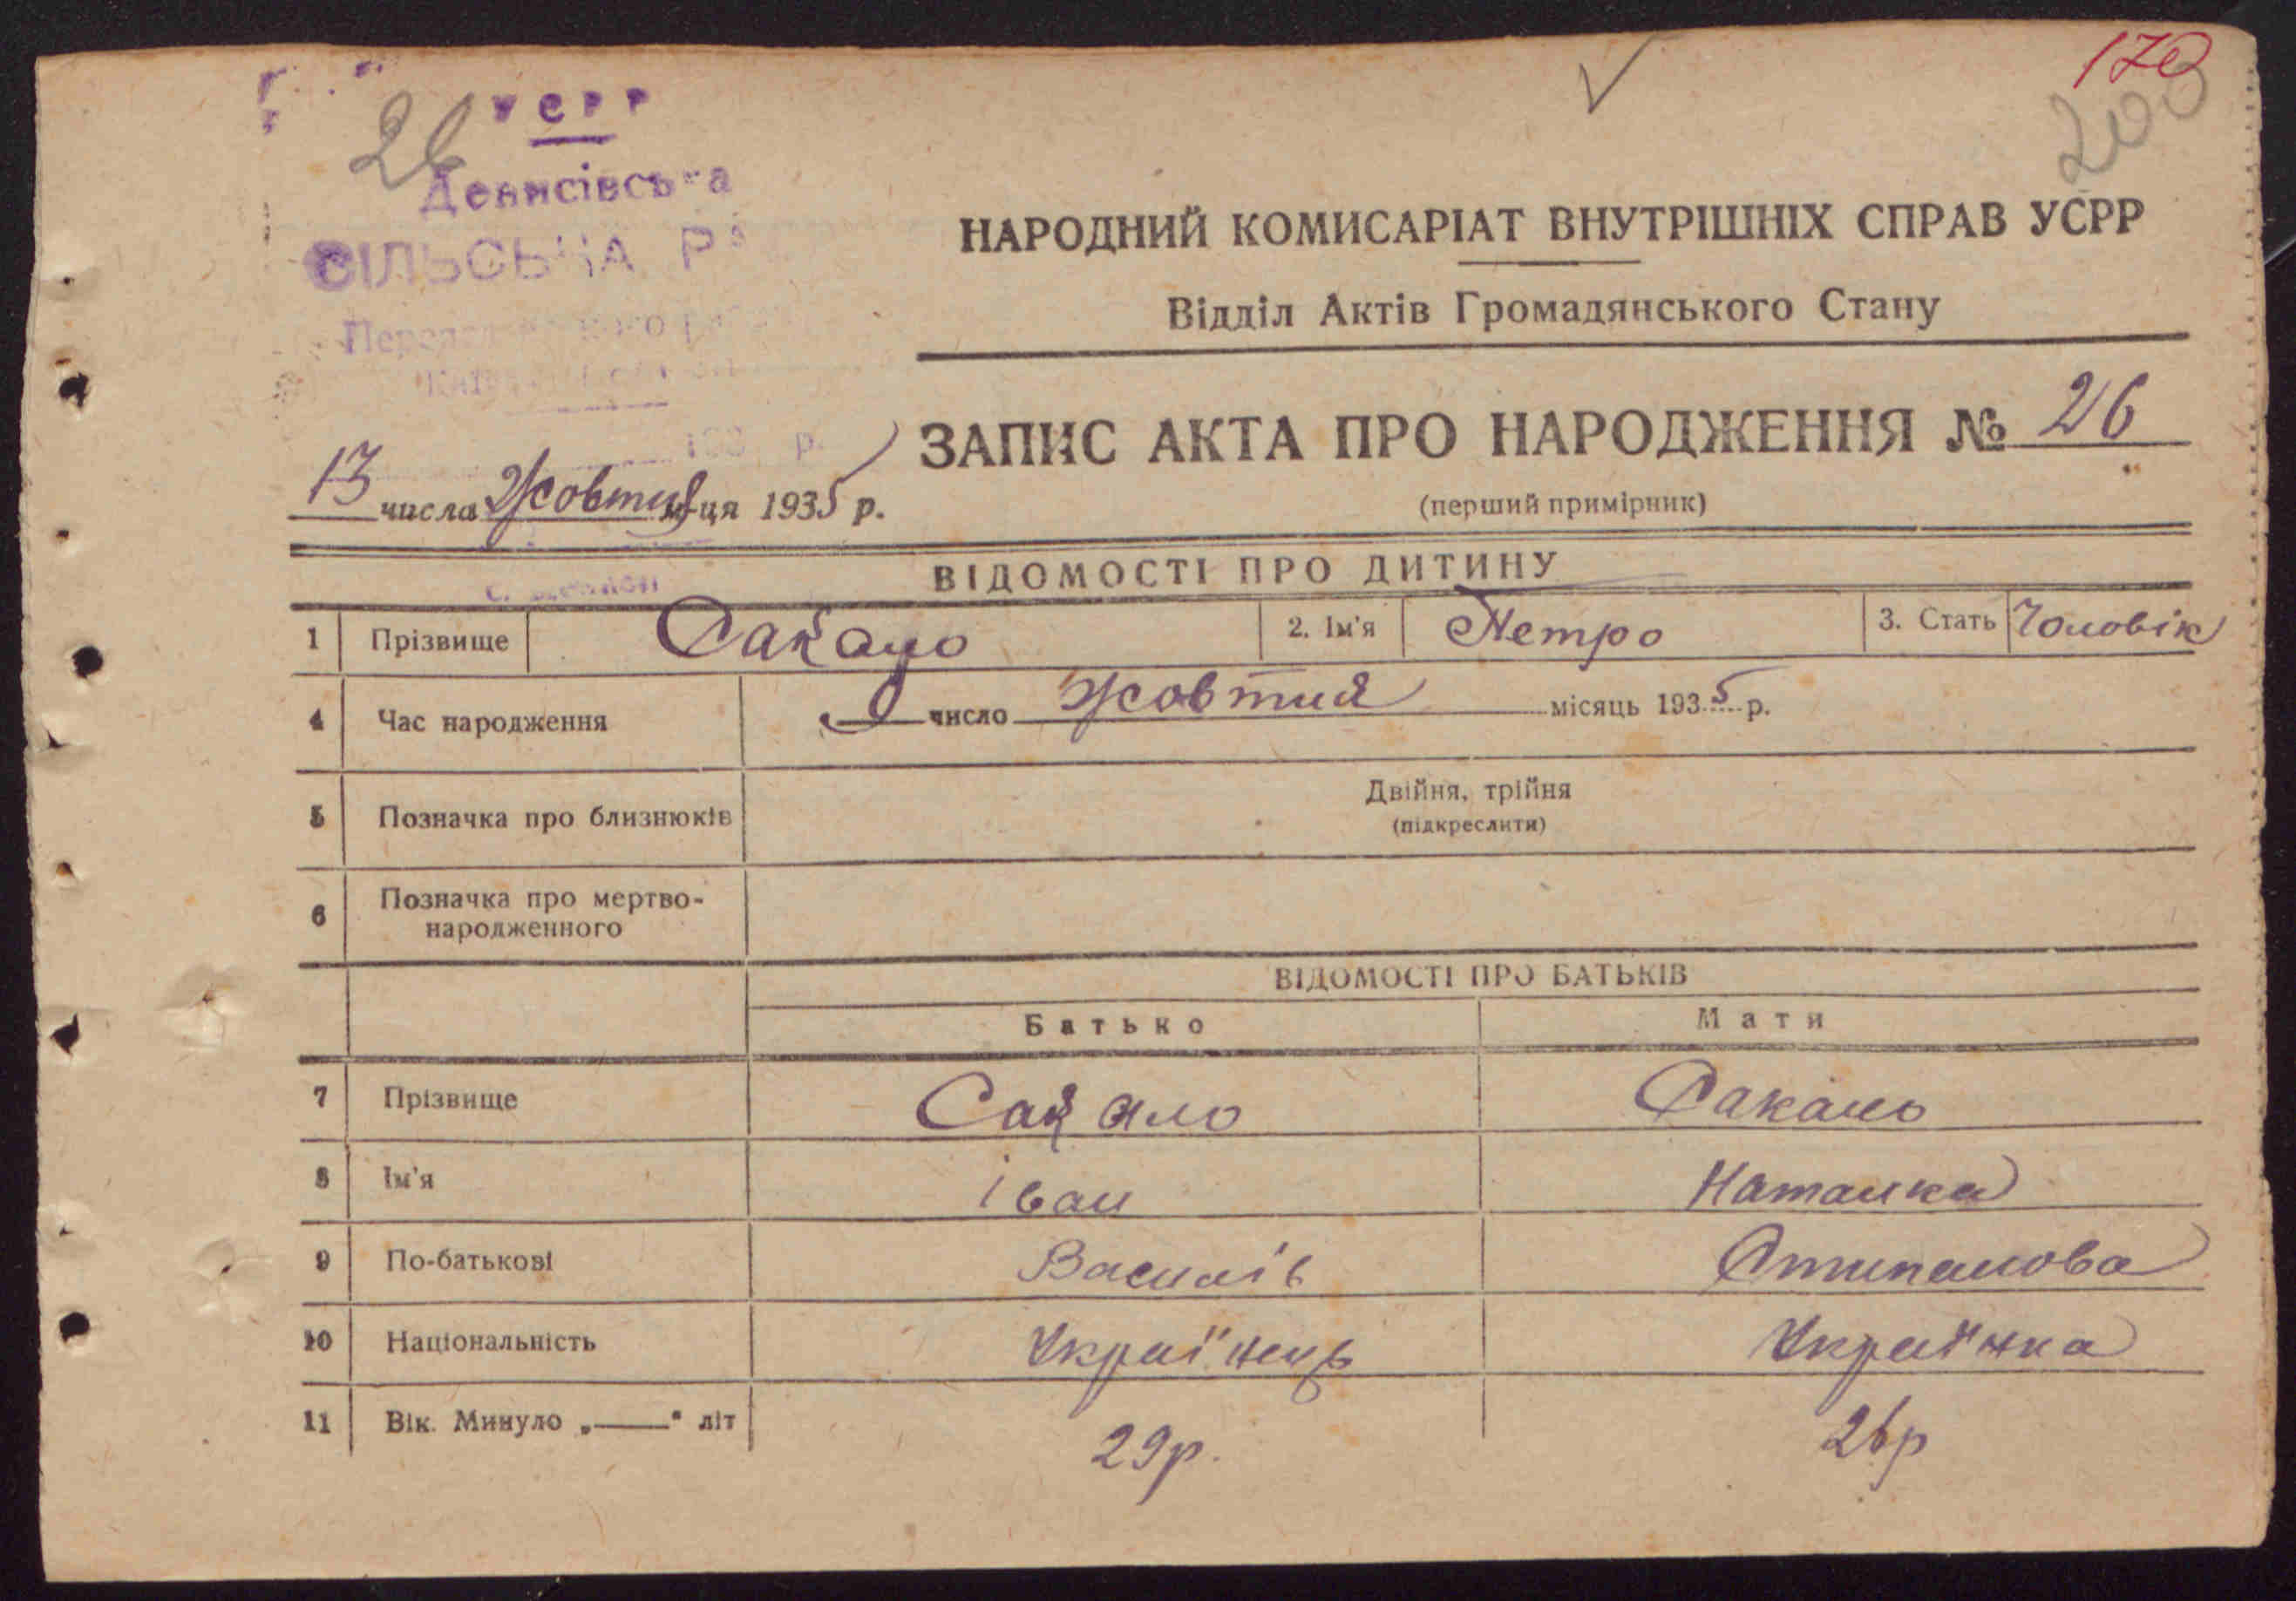 170
200
26
УСРР
Денисівська
СІЛЬСЬКА
НАРОДНИЙ КОМИСАРІАТ ВНУТРІШНІХ СПРАВ УСРР
Відділ Актів Громадянського Стану
ЗАПИС АКТА ПРО НАРОДЖЕННЯ № 26
(перший примірник)
13 числа Жовтня м-ця 1935 р.
ВІДОМОСТІ ПРО ДИТИНУ
1 Прізвище Сакало 2. Ім'я Петро 3. Стать Чоловік
4 Час народження 9 число Жовтня місяць 1935 р.
5 Позначка про близнюків Двійня, трійня
(підкреслити)
6 Позначка про мертво-
народженного
ВІДОМОСТІ ПРО БАТЬКІВ
Батько Мати
7 Прізвище Сакало Сакало
8 Ім'я Іван Наталка
9 По-батькові Василів Стипанова
10 Національність Украї'нець Украї'нка
11 Вік. Минуло „——“ літ 29р. 26р